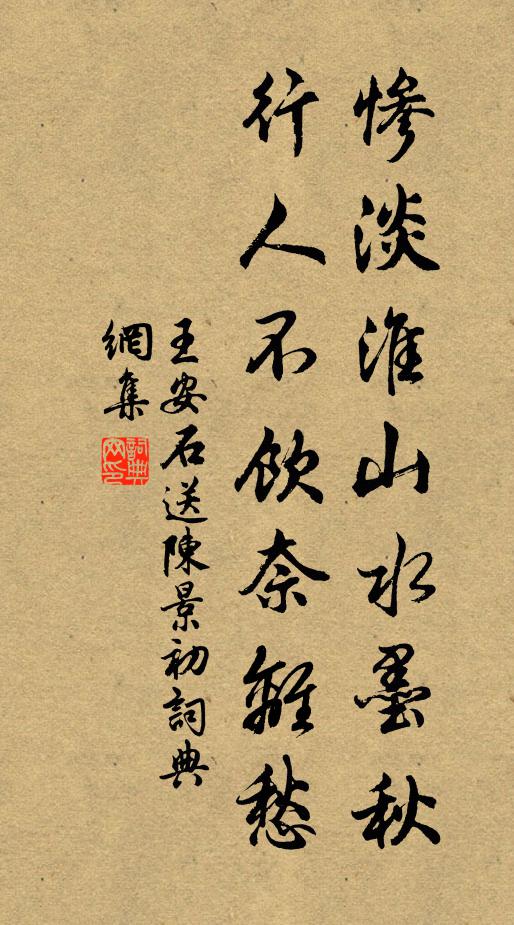 慘淡淮山水墨秋
行人不飲奈離愁
王安石送陳景初詞典
網集
詞典
网印